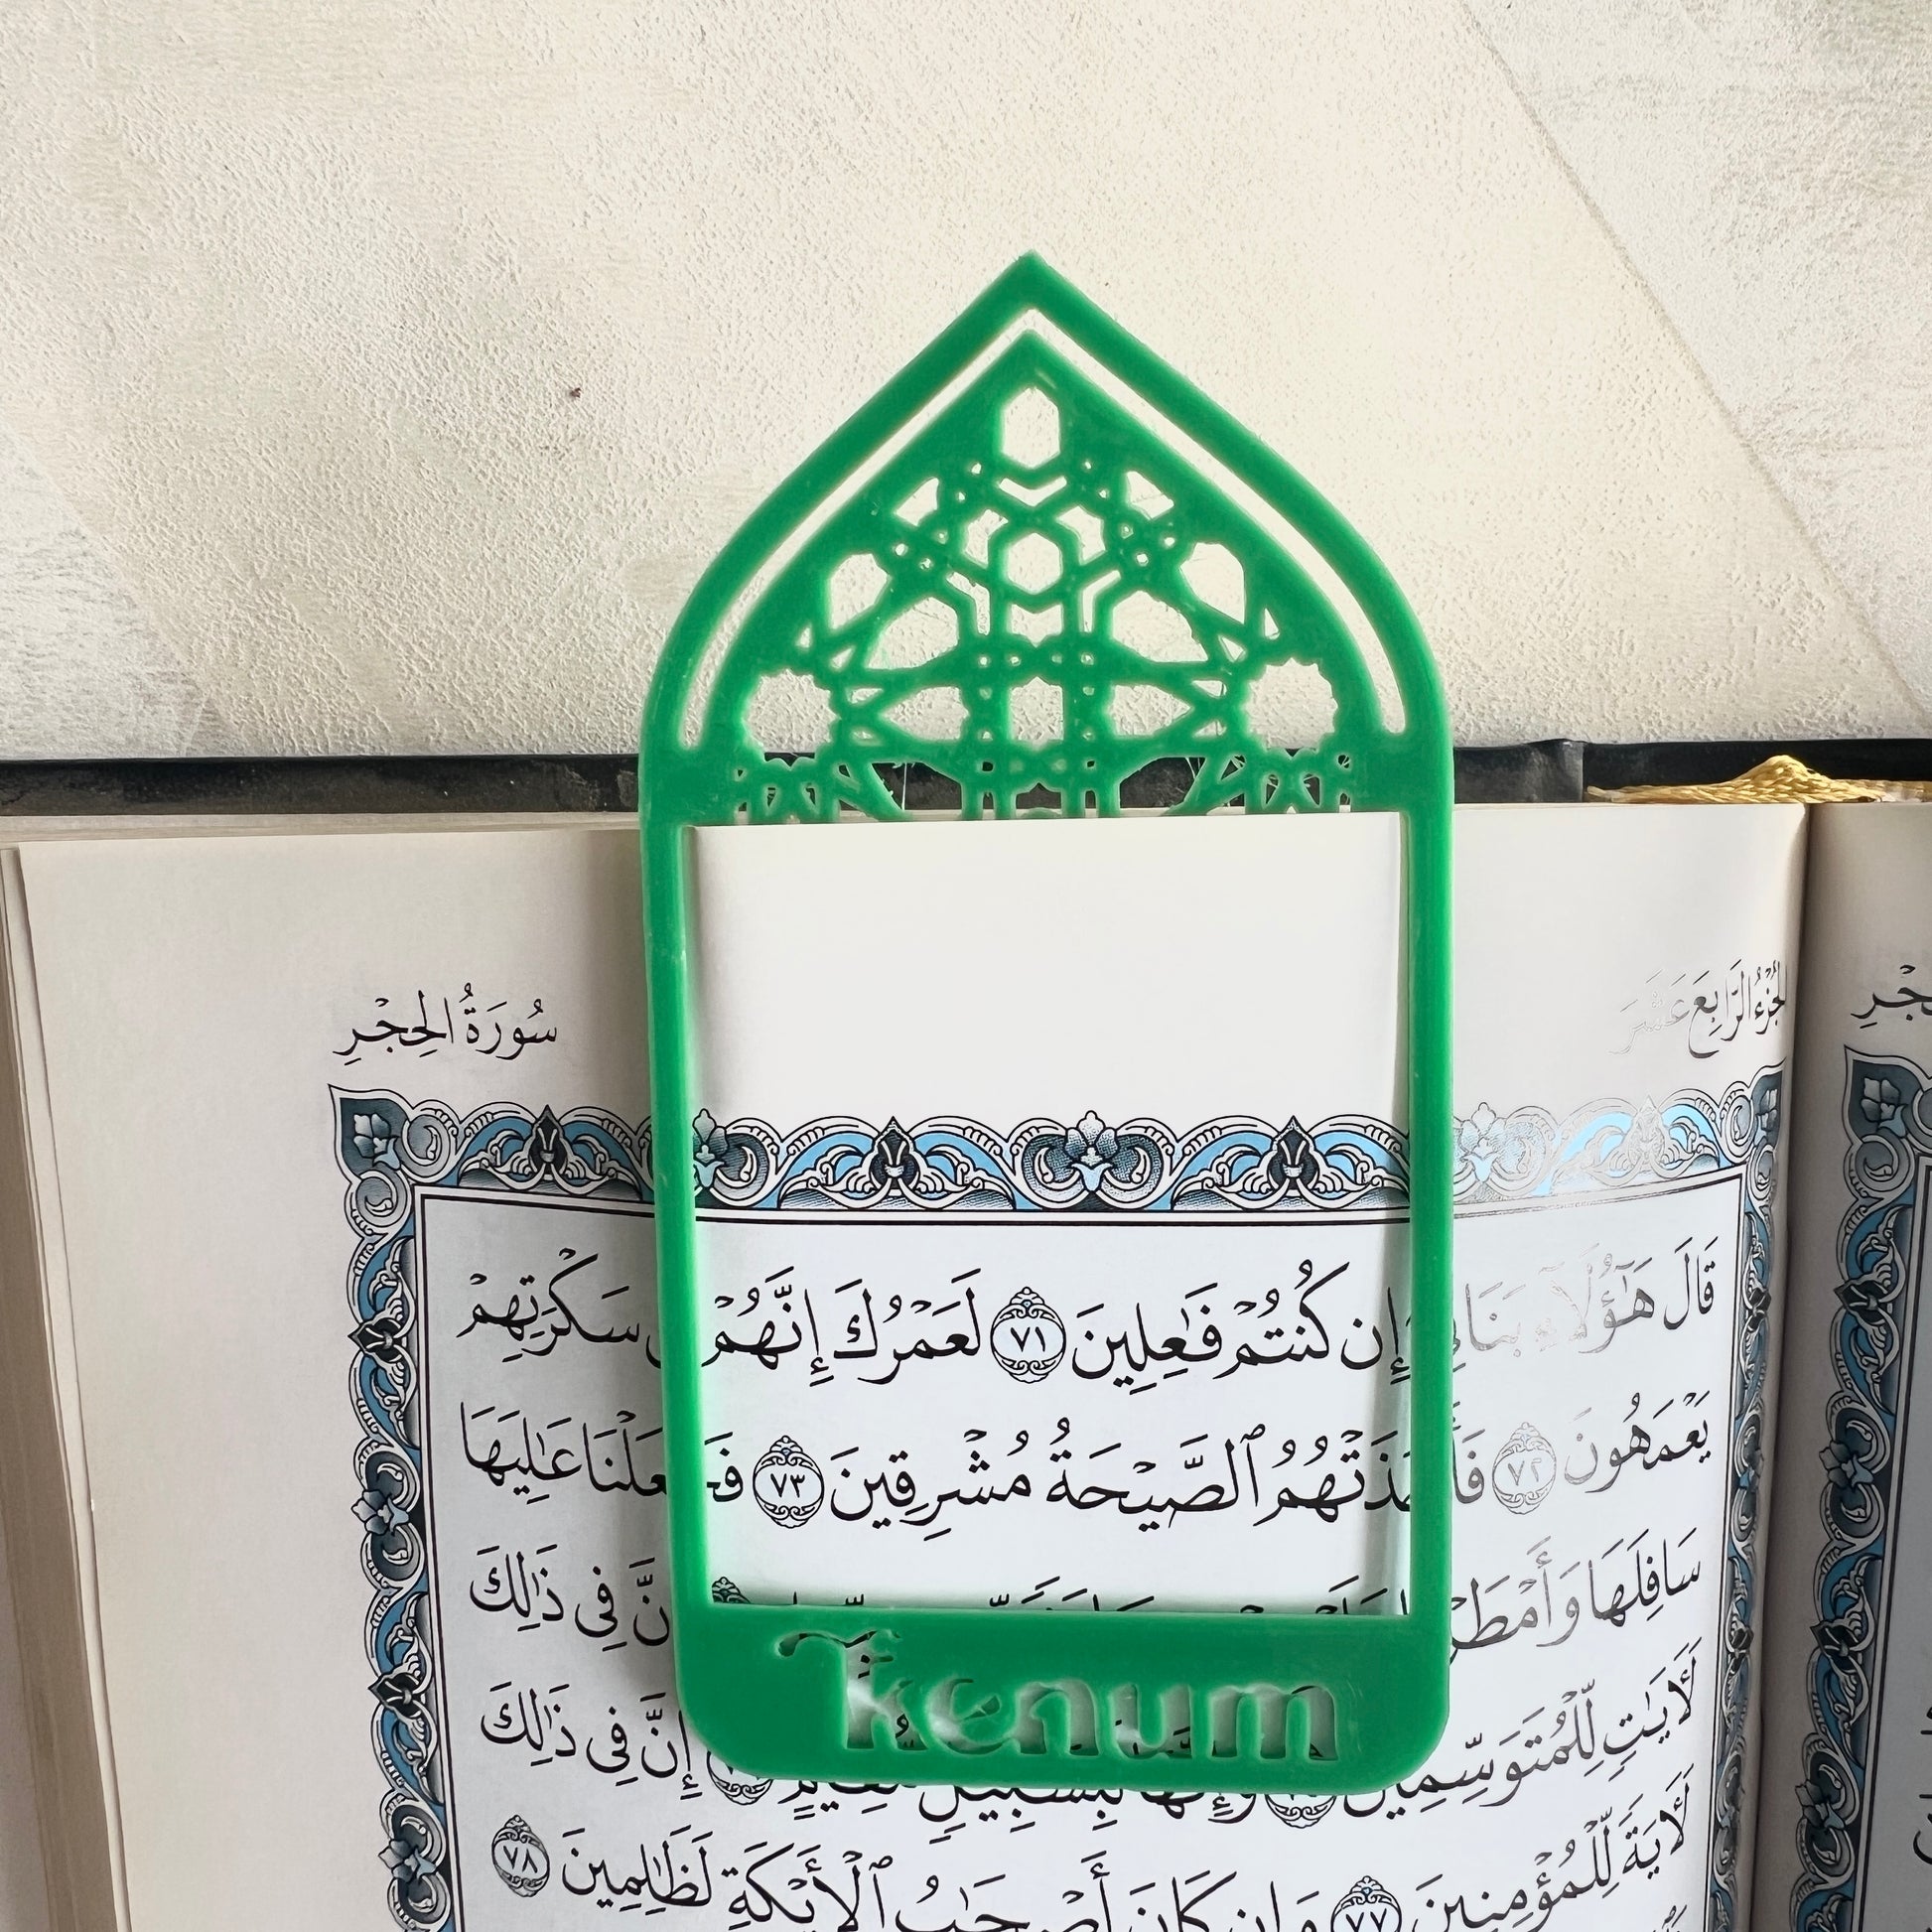 سُورَةُ الحِجْرِ
الجُزْءُ الرَّابِعَ عَشَرَ
قَالَ هَـٰٓؤُلَآءِ بَنَاتِىٓ إِن كُنتُمْ فَـٰعِلِينَ ٧١ لَعَمْرُكَ إِنَّهُمْ سَكْرَتِهِمْ
يَعْمَهُونَ ٧٢ فَأَخَذَتْهُمُ ٱلصَّيْحَةُ مُشْرِقِينَ ٧٣ فَجَعَلْنَا عَـٰلِيَهَا
سَافِلَهَا وَأَمْطَرْ إِنَّ فِى ذَٰلِكَ
لَـَٔايَـٰتٍ لِّلْمُتَوَسِّمِينَ وَإِنَّهَا لَبِسَبِيلٍ مُّقِيمٍ إِنَّ فِى ذَٰلِكَ
لَـَٔايَةً لِّلْمُؤْمِنِينَ ٧٧ وَإِن كَانَ أَصْحَـٰبُ ٱلْأَيْكَةِ لَظَـٰلِمِينَ ٧٨
kenum